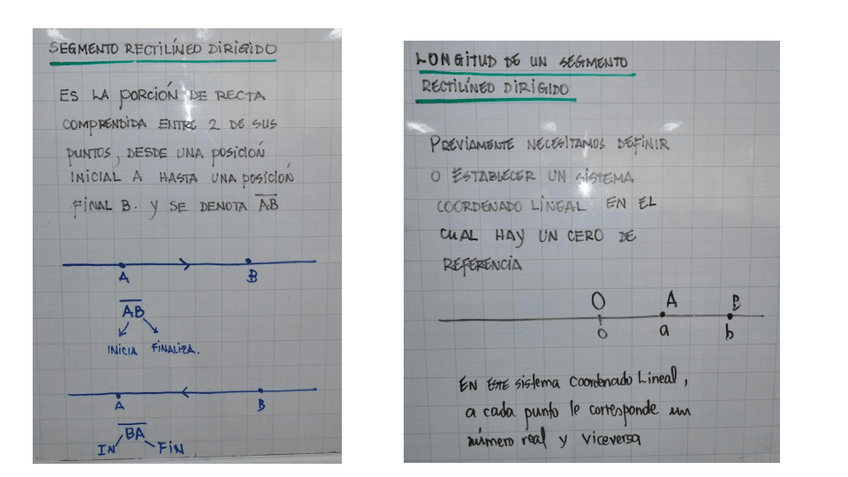 SEGMENTO RECTILÍNEO DIRIGIDO
ES LA PORCIÓN DE RECTA
COMPRENDIDA ENTRE 2 DE SUS
PUNTOS, DESDE UNA POSICIÓN
INICIAL A HASTA UNA POSICIÓN
FINAL B. Y SE DENOTA A̅B̅
A B
A̅B̅
INICIA FINALIZA.
A B
B̅A̅
IN FIN
LONGITUD DE UN SEGMENTO
RECTILÍNEO DIRIGIDO
PREVIAMENTE NECESITAMOS DEFINIR
O ESTABLECER UN SISTEMA
COORDENADO LINEAL EN EL
CUAL HAY UN CERO DE
REFERENCIA
O A B
0 a b
EN ESTE sistema Coordenado Lineal,
a cada punto le corresponde un
número real y viceversa